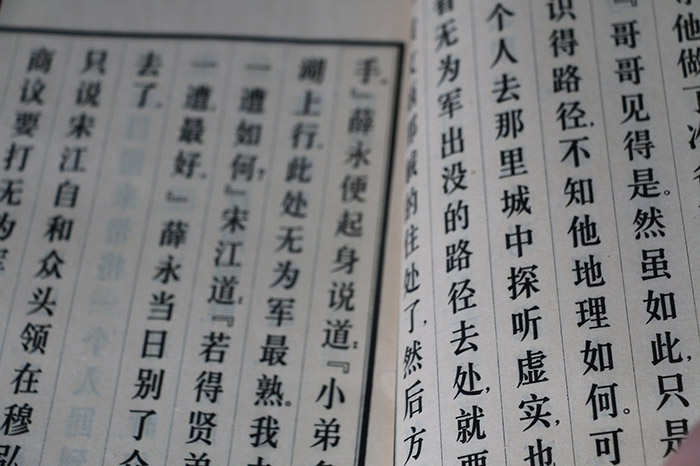 『哥哥见得是。然虽如此，只是
识得路径，不知他地理如何。可
个人去那里城中探听虚实，也
看无为军出没的路径去处，就要
的住处了，然后方
手。』薛永便起身说道：『小弟多
湖上行。此处无为军最熟。我去
一遭如何？』宋江道：『若得贤弟
一遭，最好。』薛永当日别了众
去了。
只说宋江自和众头领在穆弘
商议要打无为军